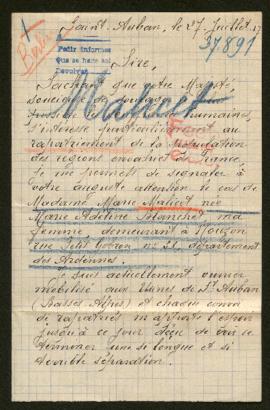 Saint-Auban, le 27 Juillet 17
37891
Pedir informes
que se hara asi
Sire,
Sachant que votre Majesté,
soucieuse de soulager
humaines,
s'intéresse particulièrement au
rapatriement de la population
des régions envahies de France,
je me permets de signaler à
votre auguste attention le cas de
Madame Marie Malicet née
Marie Adeline Blanchet, ma
femme demeurant à Mouzon
rue petit terrain, n° 21 département
des Ardennes.
Je suis actuellement ouvrier
mobilisé aux Usines de St Auban
(Basses Alpes) et chaque convoi
de rapatriés m'apporte l'espoir
jusqu'à ce jour déçu de voir se
terminer une si longue et si
terrible séparation.